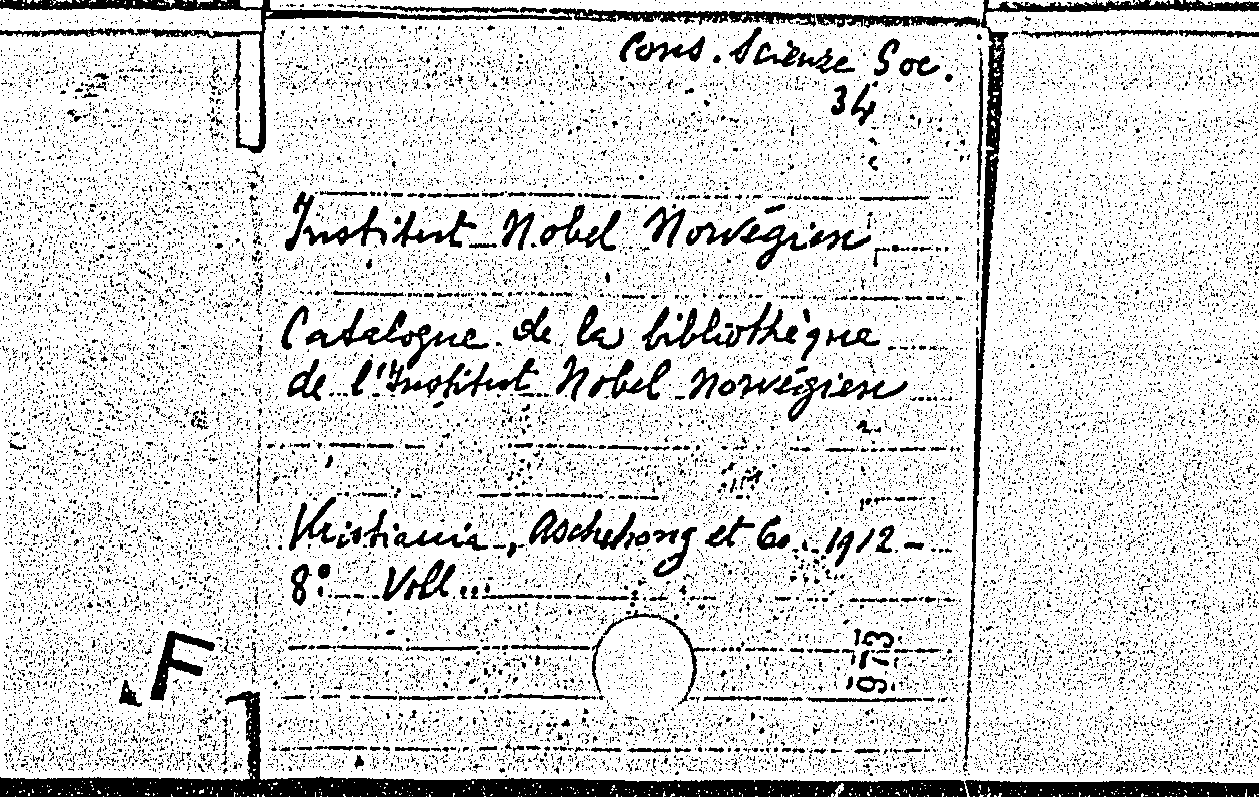 Cons. Scienze Soc.
34
Institut Nobel Norvégien
Catalogue de la bibliothèque
de l'Institut Nobel Norvégien
Kristiania, Aschehong et Co. 1912 -
8° Voll...
973
F